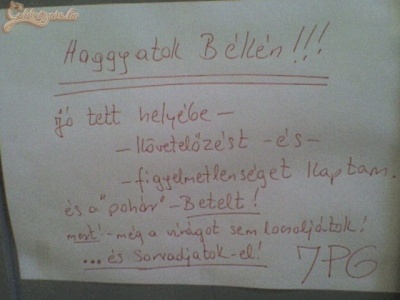 Haggyatok Békén!!!
jó tett helyébe –
– követelőzést – és –
– figyelmetlenséget kaptam.
és a "pohár" – Betelt!
mert! – még a virágot sem locsoljátok!
... és sorvadjatok – el! 7PG